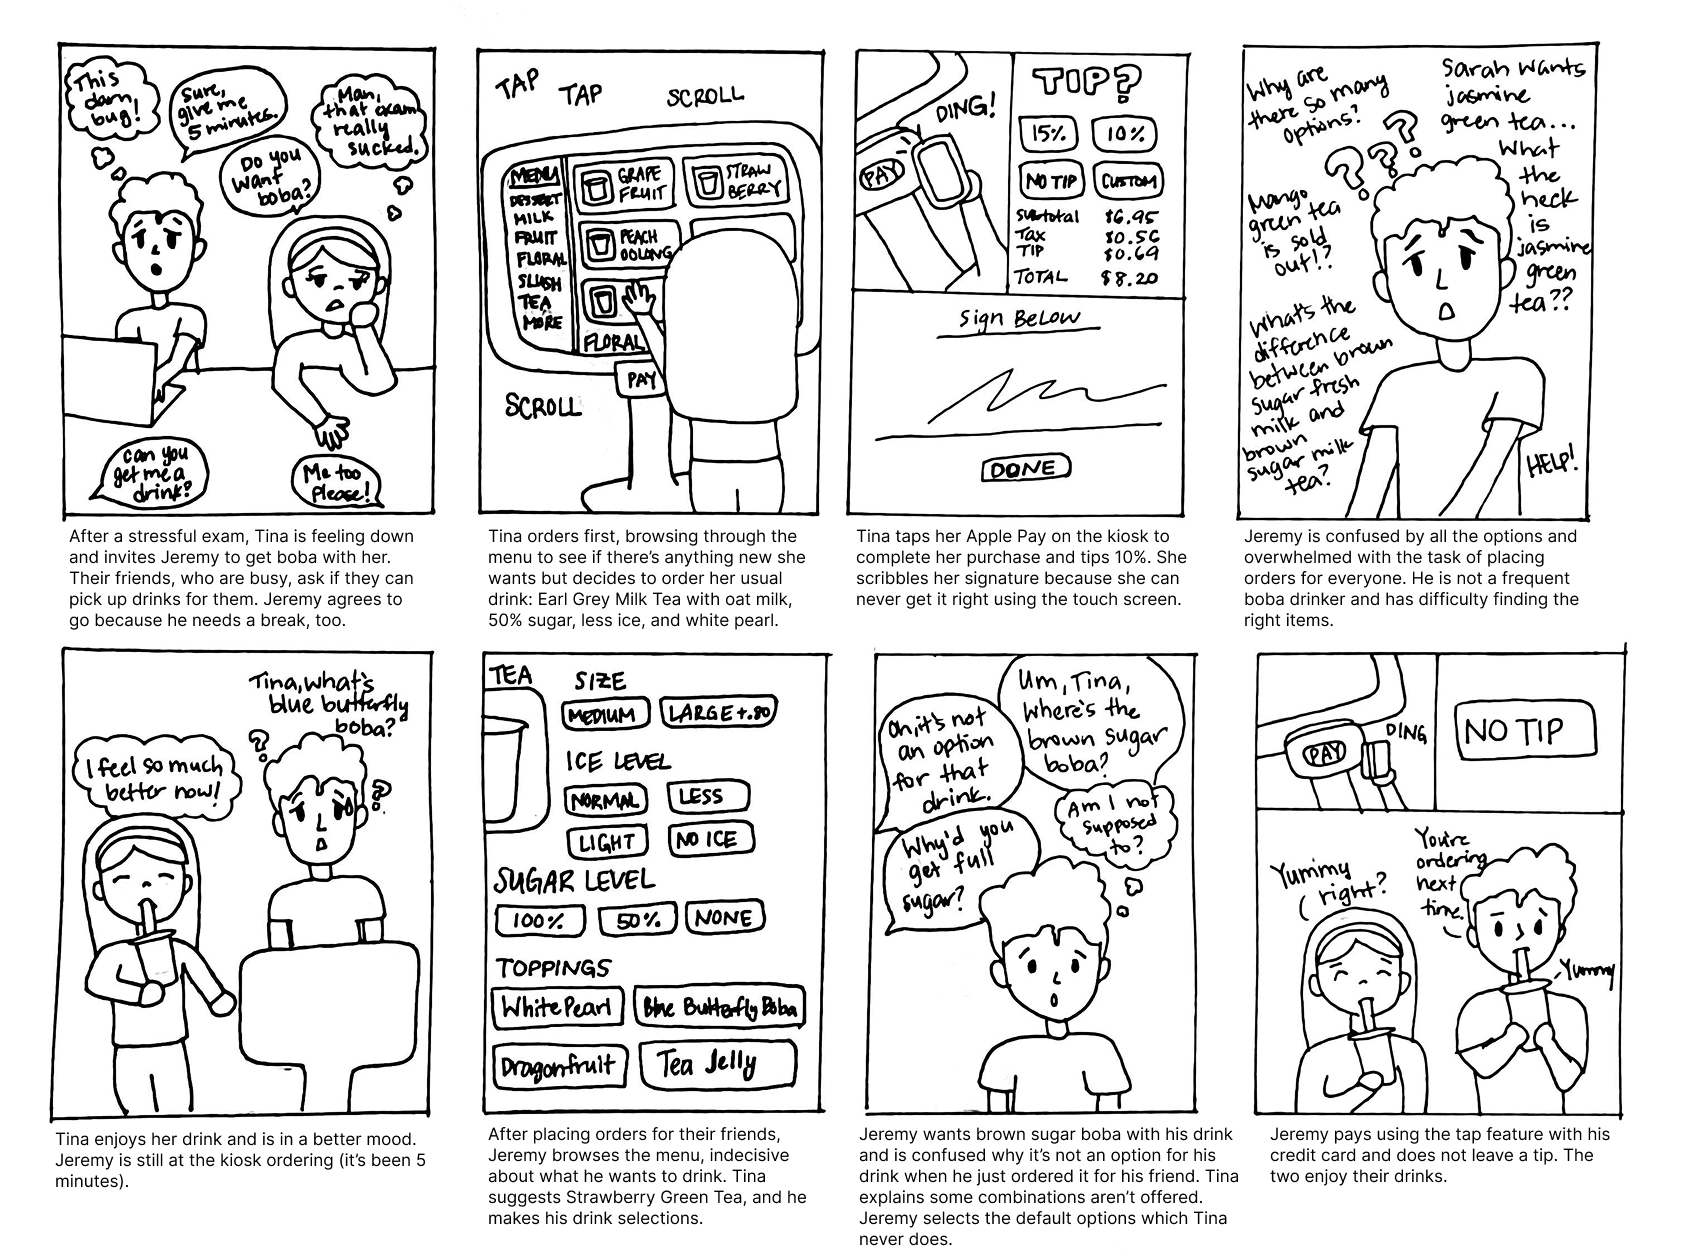 This
darn
bug!
Sure,
give me
5 minutes.
Man,
that exam
really
sucked.
Do you
want
boba?
Can you
get me a
drink?
Me too
Please!
After a stressful exam, Tina is feeling down
and invites Jeremy to get boba with her.
Their friends, who are busy, ask if they can
pick up drinks for them. Jeremy agrees to
go because he needs a break, too.
TAP
TAP
SCROLL
MENU
DESSERT
MILK
FRUIT
FLORAL
SLUSH
TEA
MORE
GRAPE
FRUIT
STRAW
BERRY
PEACH
OOLONG
FLORAL
PAY
SCROLL
Tina orders first, browsing through the
menu to see if there's anything new she
wants but decides to order her usual
drink: Earl Grey Milk Tea with oat milk,
50% sugar, less ice, and white pearl.
DING!
PAY
TIP?
15%
10%
NO TIP
CUSTOM
Subtotal $6.95
Tax $0.56
TIP $0.69
TOTAL $8.20
Sign Below
DONE
Tina taps her Apple Pay on the kiosk to
complete her purchase and tips 10%. She
scribbles her signature because she can
never get it right using the touch screen.
Why are
there so many
options?
Sarah wants
jasmine
green tea...
What
the
heck
is
jasmine
green
tea??
???
Mango
green tea
is sold
out!?
What's the
difference
between brown
sugar fresh
milk and
brown
sugar milk
tea?
HELP!
Jeremy is confused by all the options and
overwhelmed with the task of placing
orders for everyone. He is not a frequent
boba drinker and has difficulty finding the
right items.
Tina, what's
blue butterfly
boba?
I feel so much
better now!
?
?
Tina enjoys her drink and is in a better mood.
Jeremy is still at the kiosk ordering (it's been 5
minutes).
TEA
SIZE
MEDIUM
LARGE +.80
ICE LEVEL
NORMAL
LESS
LIGHT
NO ICE
SUGAR LEVEL
100%
50%
NONE
TOPPINGS
White Pearl
Blue Butterfly Boba
Dragonfruit
Tea Jelly
After placing orders for their friends,
Jeremy browses the menu, indecisive
about what he wants to drink. Tina
suggests Strawberry Green Tea, and he
makes his drink selections.
Um, Tina,
where's the
brown sugar
boba?
Oh, it's not
an option
for that
drink.
Am I not
supposed
to?
Why'd you
get full
sugar?
Jeremy wants brown sugar boba with his drink
and is confused why it's not an option for his
drink when he just ordered it for his friend. Tina
explains some combinations aren't offered.
Jeremy selects the default options which Tina
never does.
PAY
DING
NO TIP
Yummy
right?
You're
ordering
next
time.
Yummy
Jeremy pays using the tap feature with his
credit card and does not leave a tip. The
two enjoy their drinks.